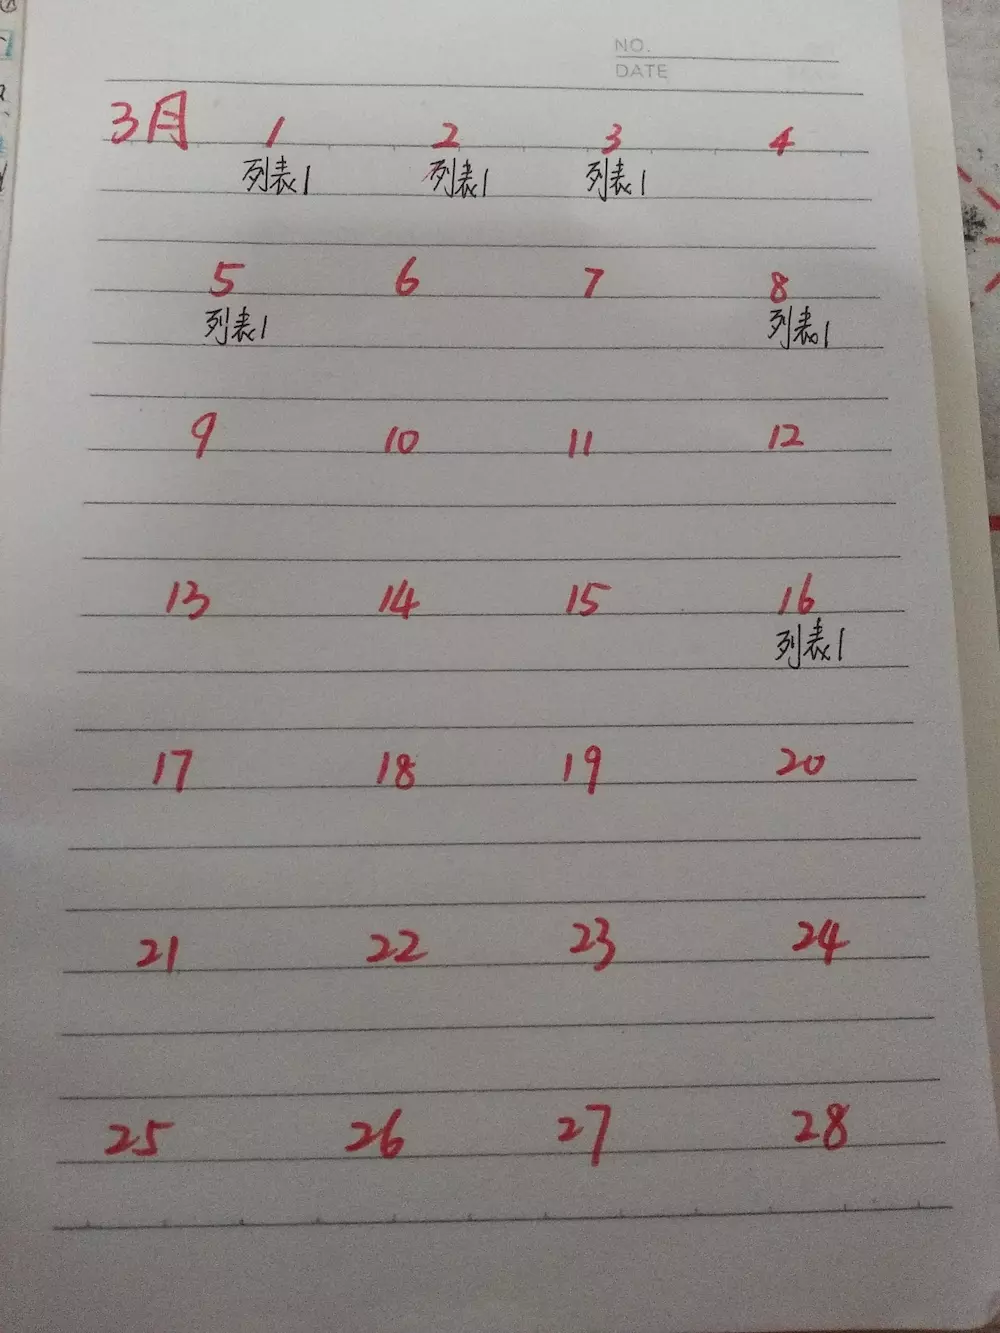 NO.
DATE
3月 1 2 3 4
列表1 列表1 列表1
5 6 7 8
列表1 列表1
9 10 11 12
13 14 15 16
列表1
17 18 19 20
21 22 23 24
25 26 27 28